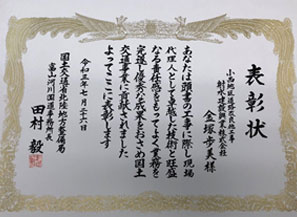 表彰状
小西地区道路改良他工事
射水建設興業株式会社
金塚歩美様
あなたは頭書の工事に際し現場
代理人として卓越した技術と旺盛
なる責任感をもってよく業務を
完遂し優秀な成果をおさめ国土
交通事業に貢献されました
よってここに表彰します
令和五年七月二十六日
国土交通省北陸地方整備局
富山河川国道事務所長
田村毅